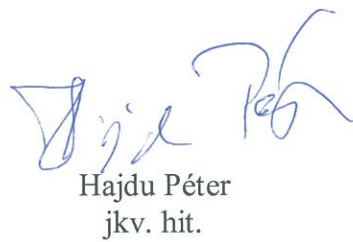 Hajdu Péter
Hajdu Péter
jkv. hit.